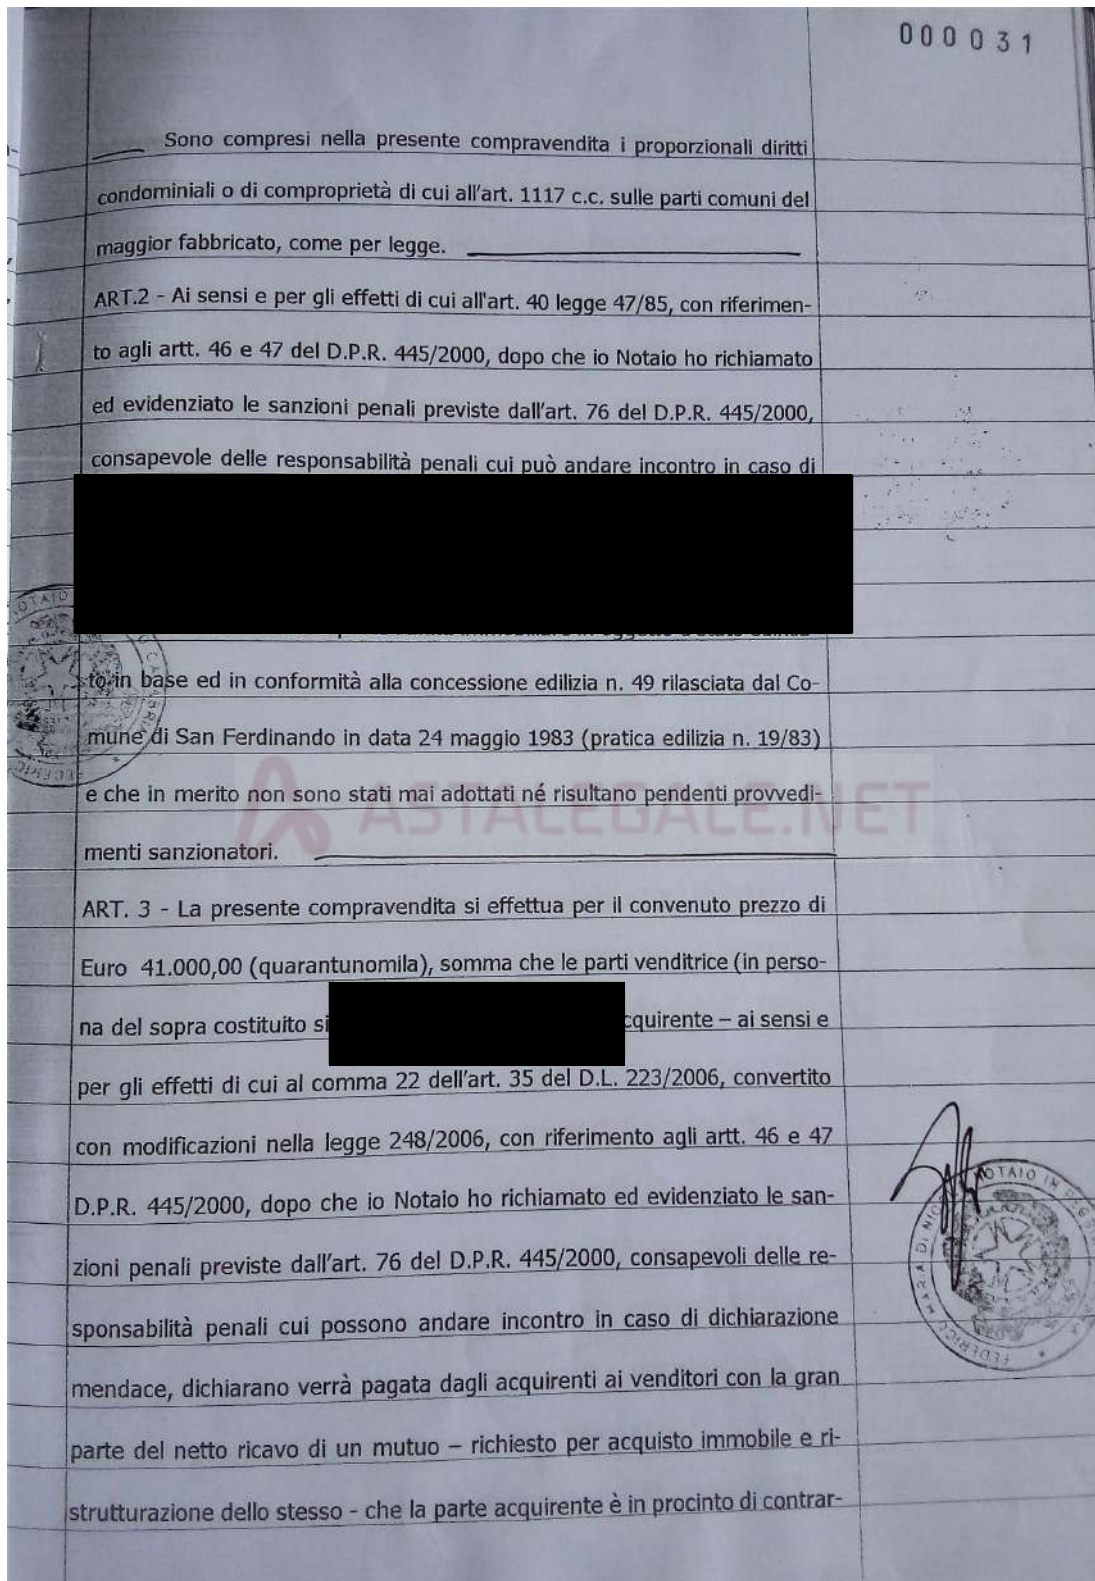 000031
Sono compresi nella presente compravendita i proporzionali diritti
condominiali o di comproprietà di cui all'art. 1117 c.c. sulle parti comuni del
maggior fabbricato, come per legge.
ART.2 - Ai sensi e per gli effetti di cui all'art. 40 legge 47/85, con riferimen-
to agli artt. 46 e 47 del D.P.R. 445/2000, dopo che io Notaio ho richiamato
ed evidenziato le sanzioni penali previste dall'art. 76 del D.P.R. 445/2000,
consapevole delle responsabilità penali cui può andare incontro in caso di
to in base ed in conformità alla concessione edilizia n. 49 rilasciata dal Co-
mune di San Ferdinando in data 24 maggio 1983 (pratica edilizia n. 19/83)
e che in merito non sono stati mai adottati né risultano pendenti provvedi-
ASTALEGALE.NET
menti sanzionatori.
ART. 3 - La presente compravendita si effettua per il convenuto prezzo di
Euro 41.000,00 (quarantunomila), somma che le parti venditrice (in perso-
na del sopra costituito si cquirente – ai sensi e
per gli effetti di cui al comma 22 dell'art. 35 del D.L. 223/2006, convertito
con modificazioni nella legge 248/2006, con riferimento agli artt. 46 e 47
D.P.R. 445/2000, dopo che io Notaio ho richiamato ed evidenziato le san-
zioni penali previste dall'art. 76 del D.P.R. 445/2000, consapevoli delle re-
sponsabilità penali cui possono andare incontro in caso di dichiarazione
mendace, dichiarano verrà pagata dagli acquirenti ai venditori con la gran
parte del netto ricavo di un mutuo – richiesto per acquisto immobile e ri-
strutturazione dello stesso - che la parte acquirente è in procinto di contrar-
NOTAIO IN